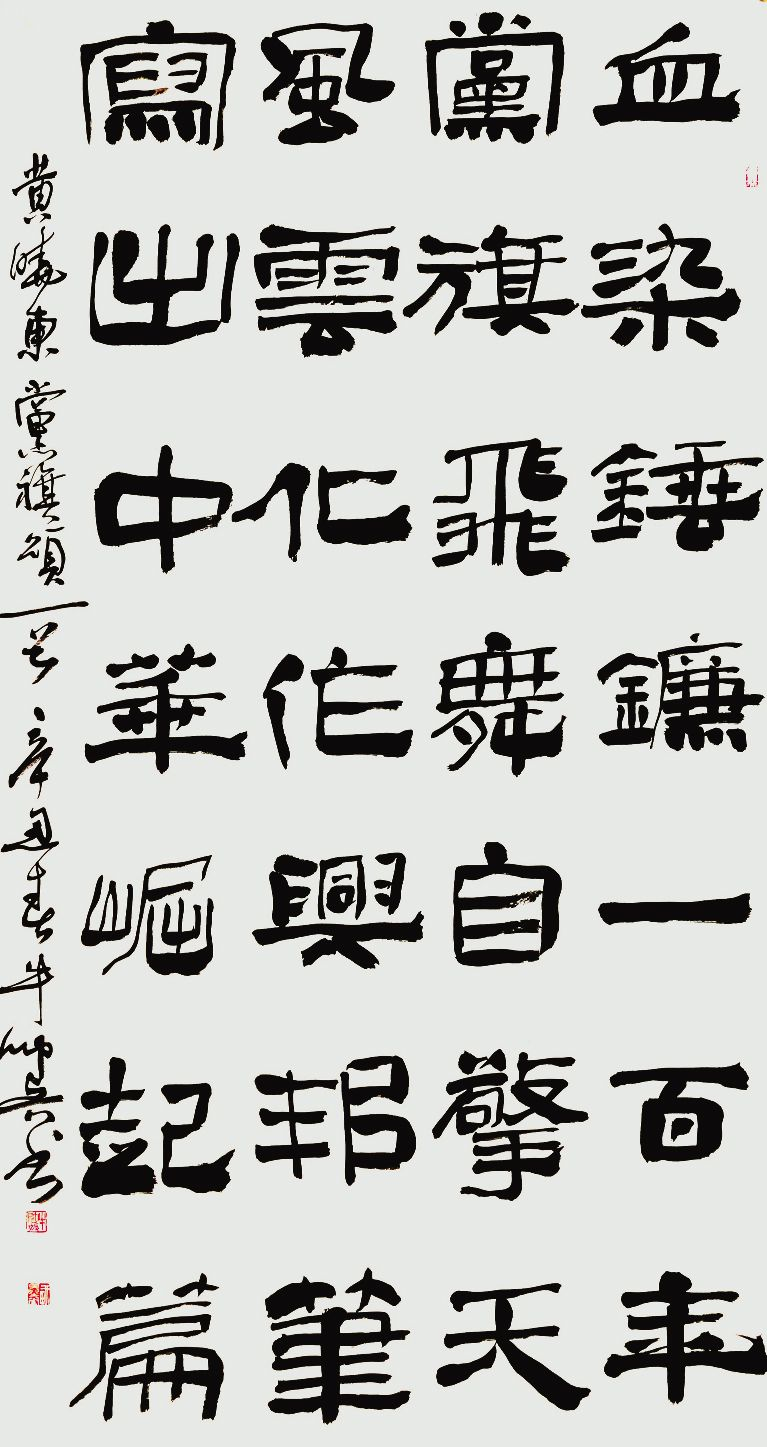 血染錘鐮一百年
黨旗飛舞自擎天
風雲化作興邦筆
寫出中華崛起篇
黄曉東黨旗頌一首辛丑春牛帅兵书